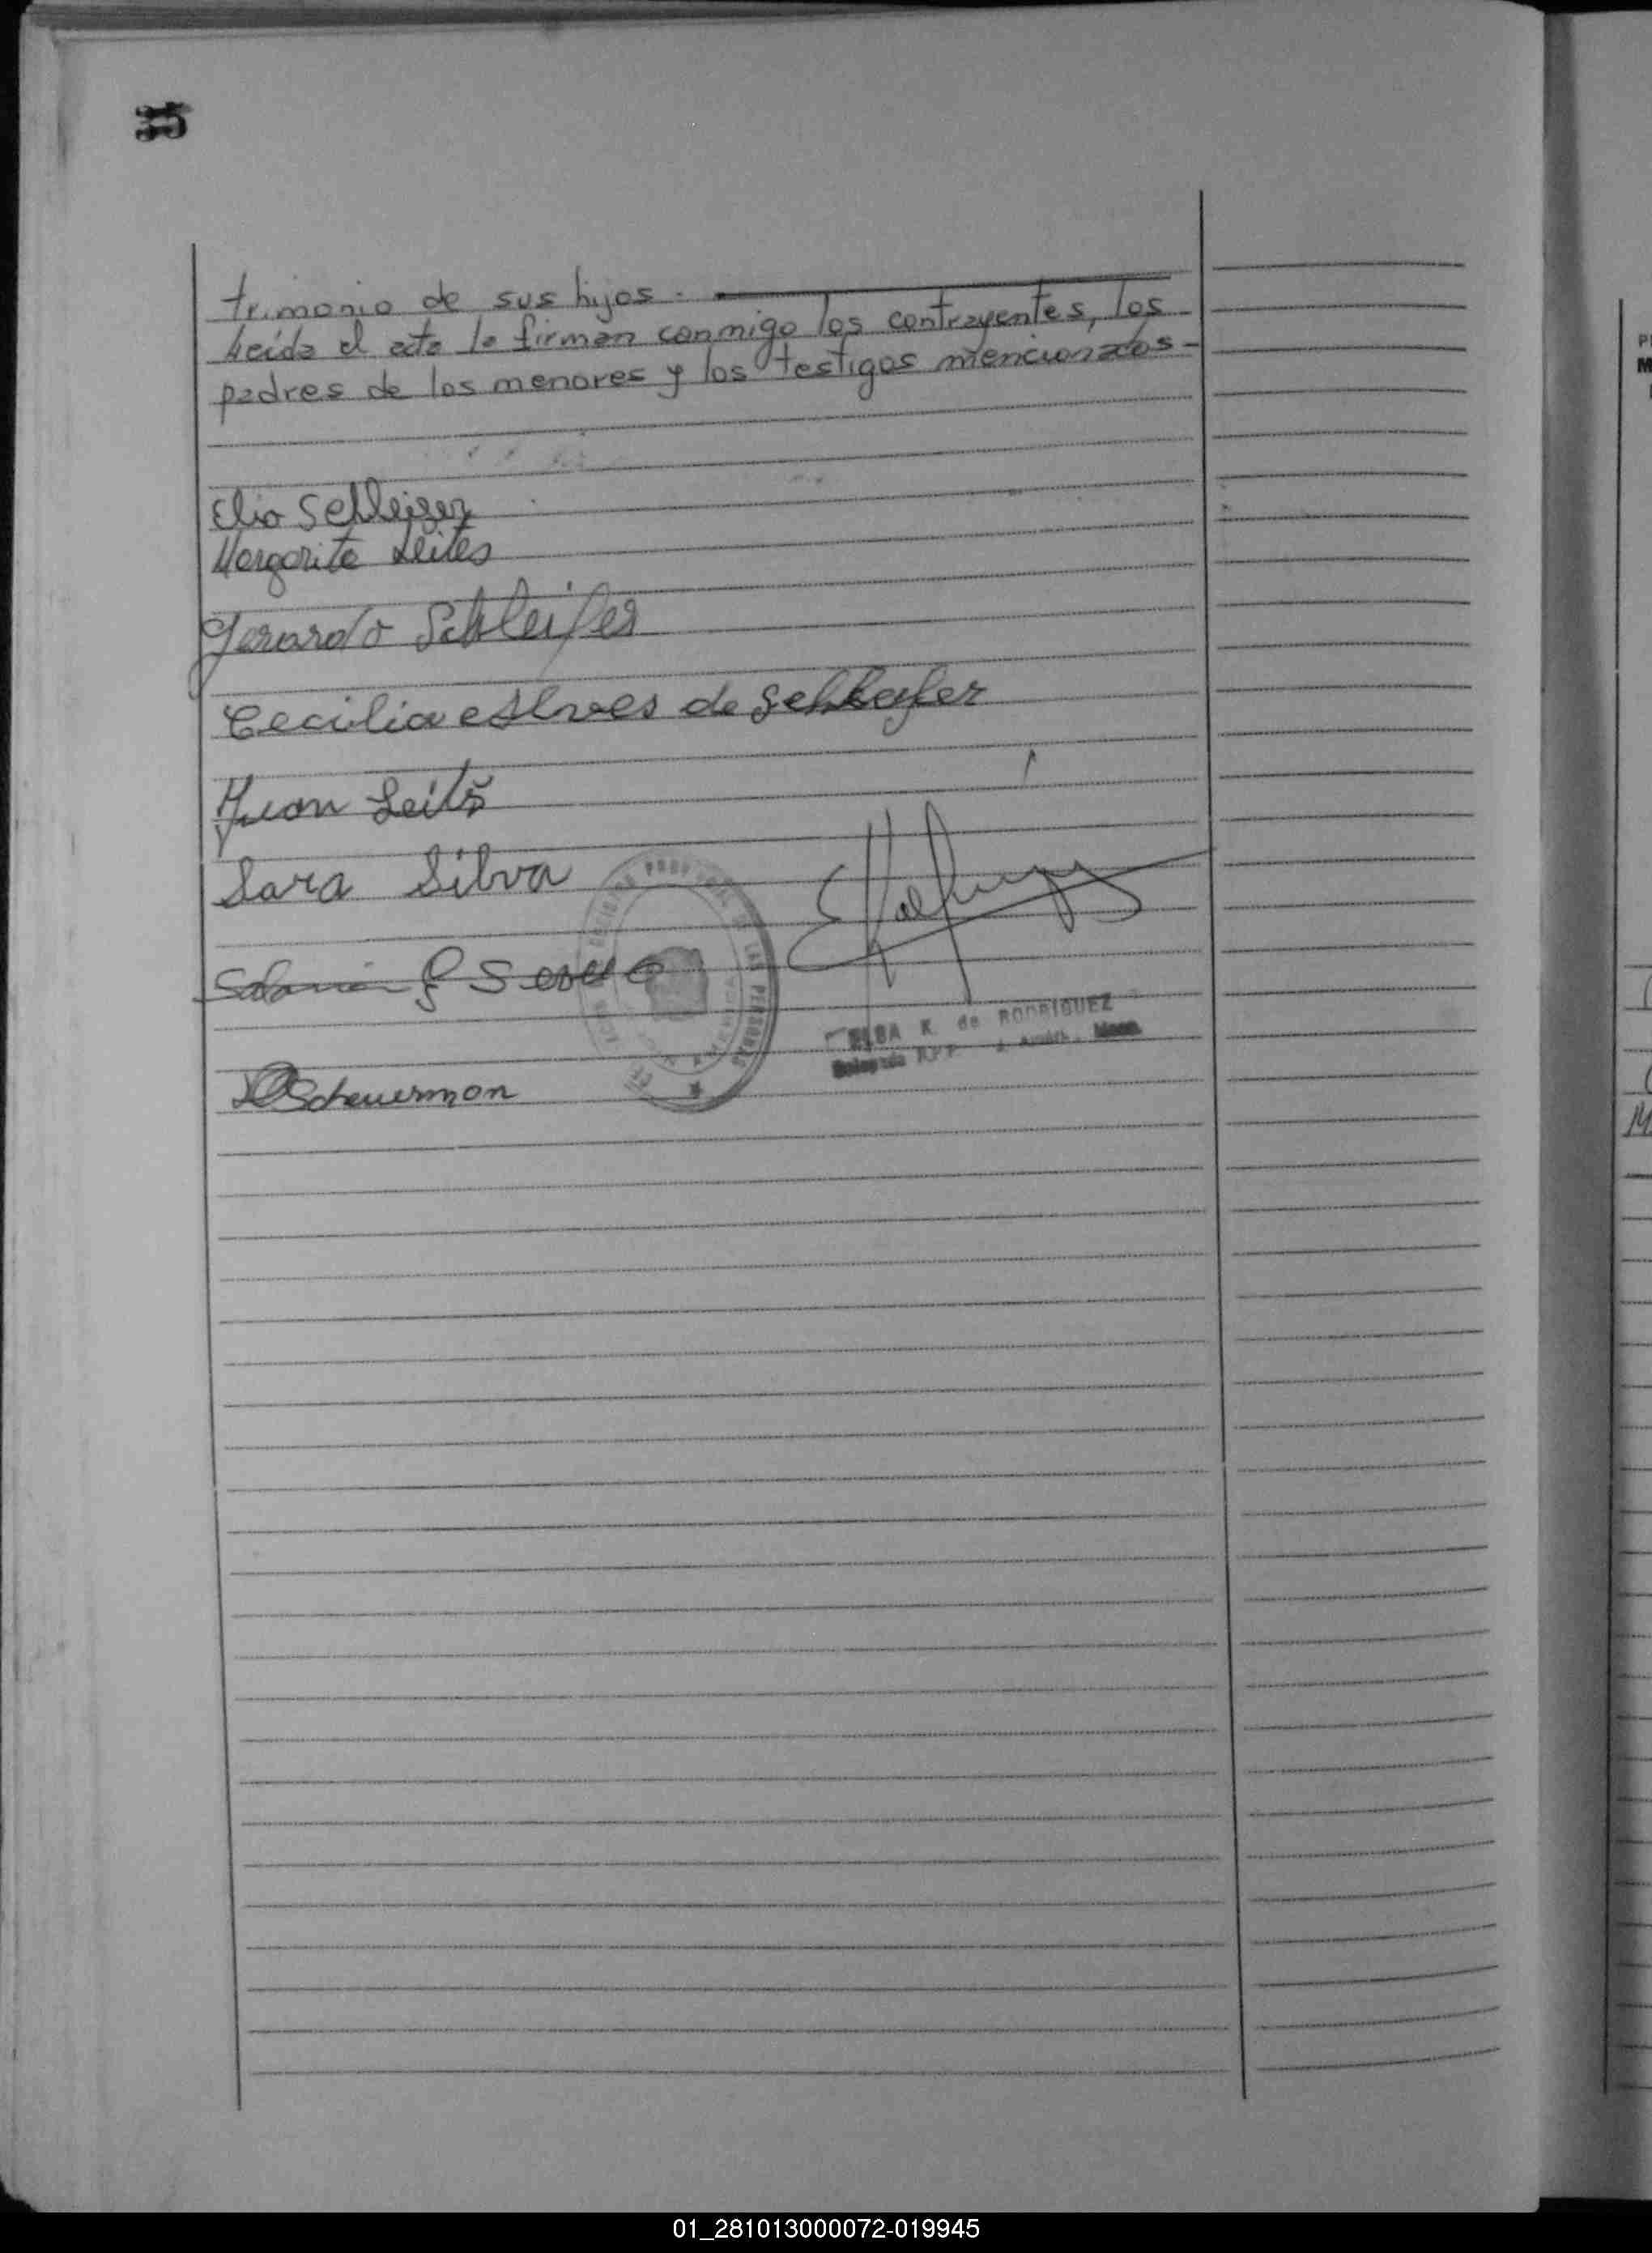 35
trimonio de sus hijos.
Leída el acta la firman conmigo los contrayentes, los
padres de los menores y los testigos mencionados
Elio Schleifer
Margarita Leites
Gerardo Schleifer
Cecilia Alves de Schleifer
Juan Leites
Sara Silva
DE LAS PERSONAS
ELBA K. de RODRIGUEZ
Delegada R.P.P.
Scheuerman
01_281013000072-019945